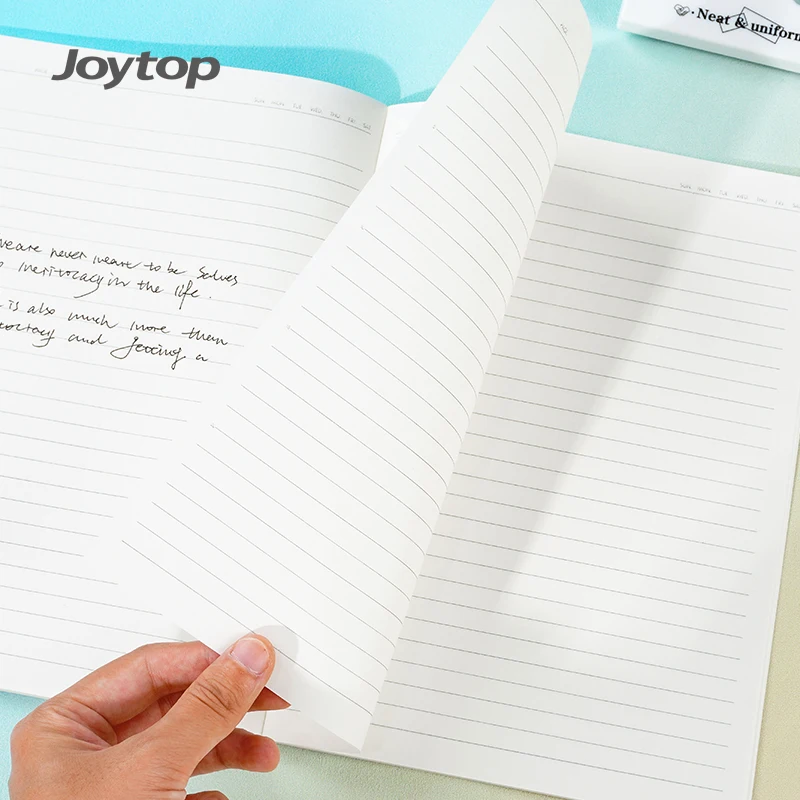 Joytop
· Neat & uniform
SUN MON TUE WED THU FRI SAT
SUN MON TUE WED THU FRI
weare never meant to be
in the life .
is also much more than
and a